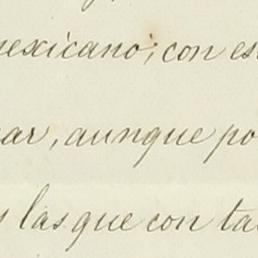 mexicano; con es
ar, aunque po
s las que con ta